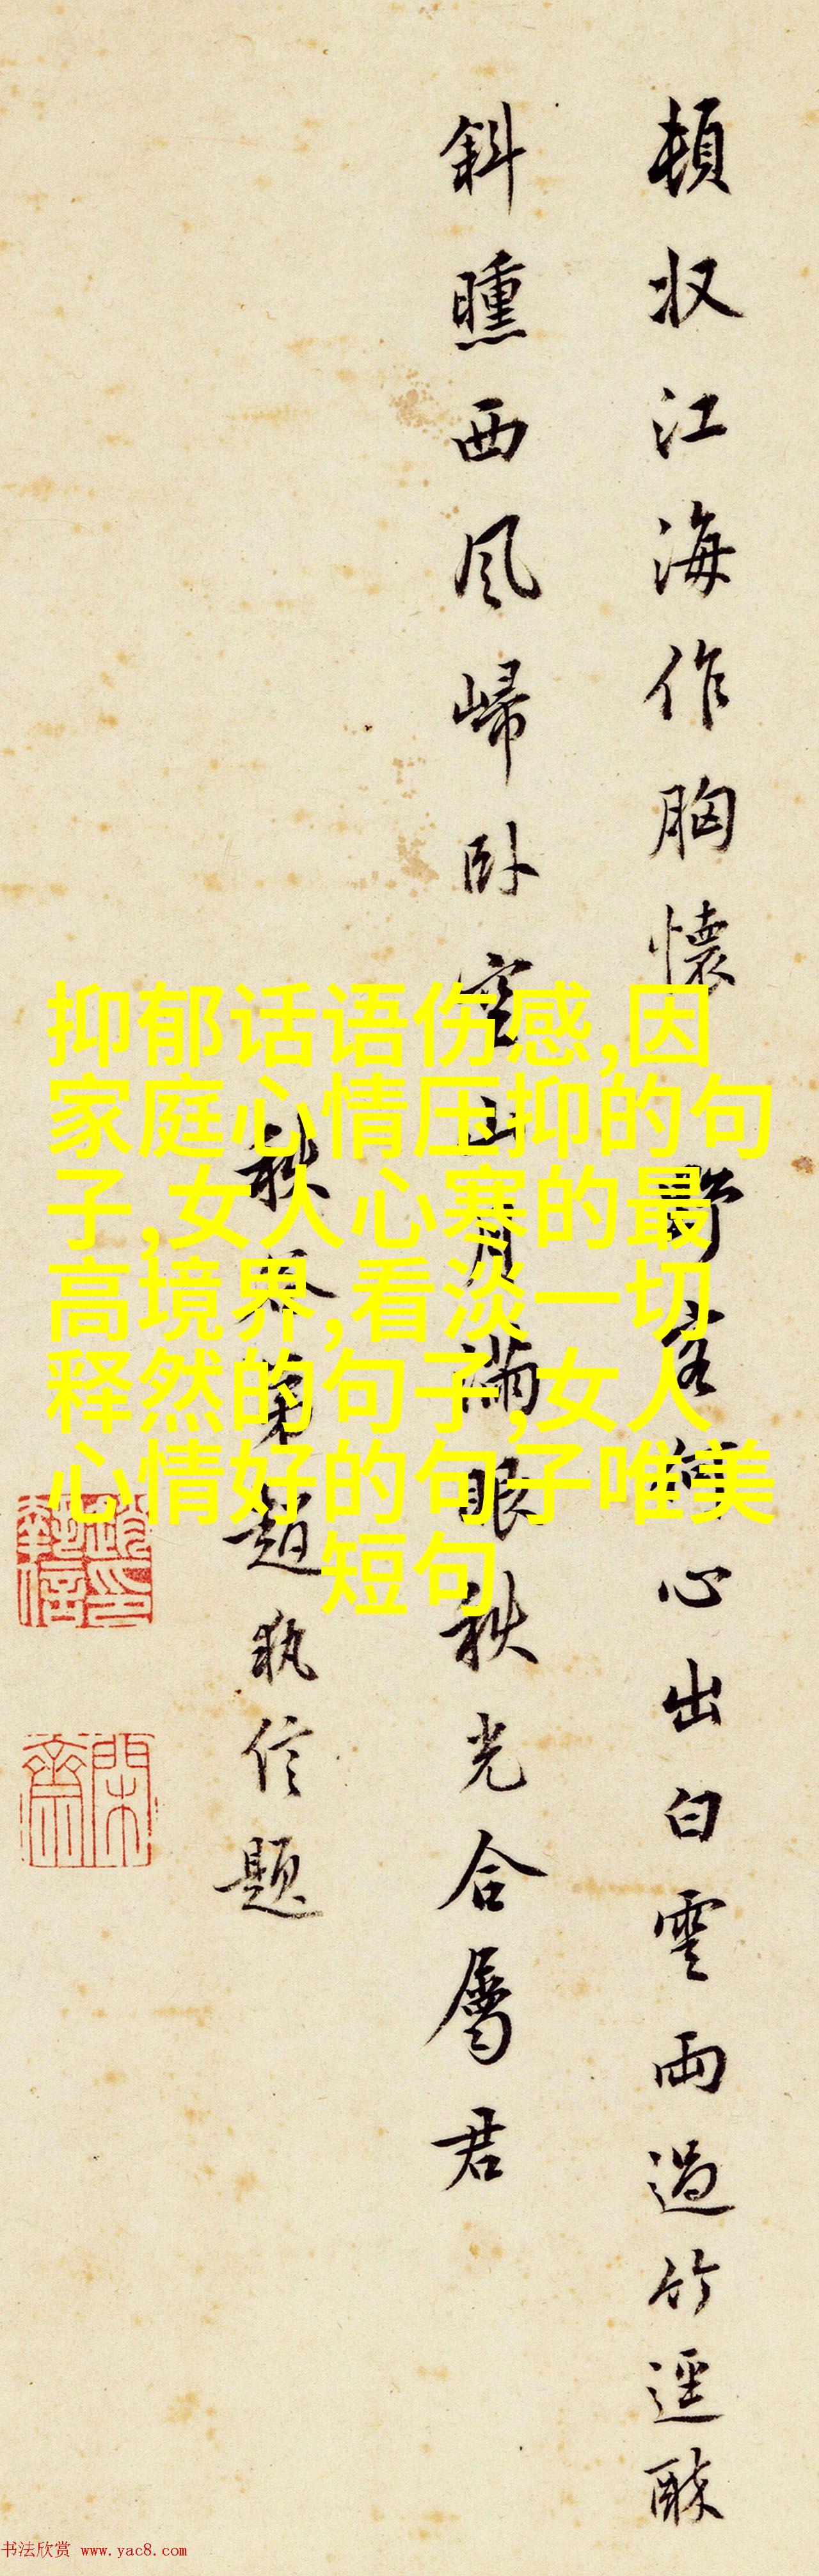 頓収江海作胸懷 心出白雲雨過竹逕醉
斜曛西風歸卧空山月滿眼秋光合屬君
秋谷弟趙執信題
抑郁话语伤感,因
家庭心情压抑的句
子,女人心寒的最
高境界,看淡一切
释然的句子,女人
心情好的句子唯美
短句
書法欣赏 www.yac8.com